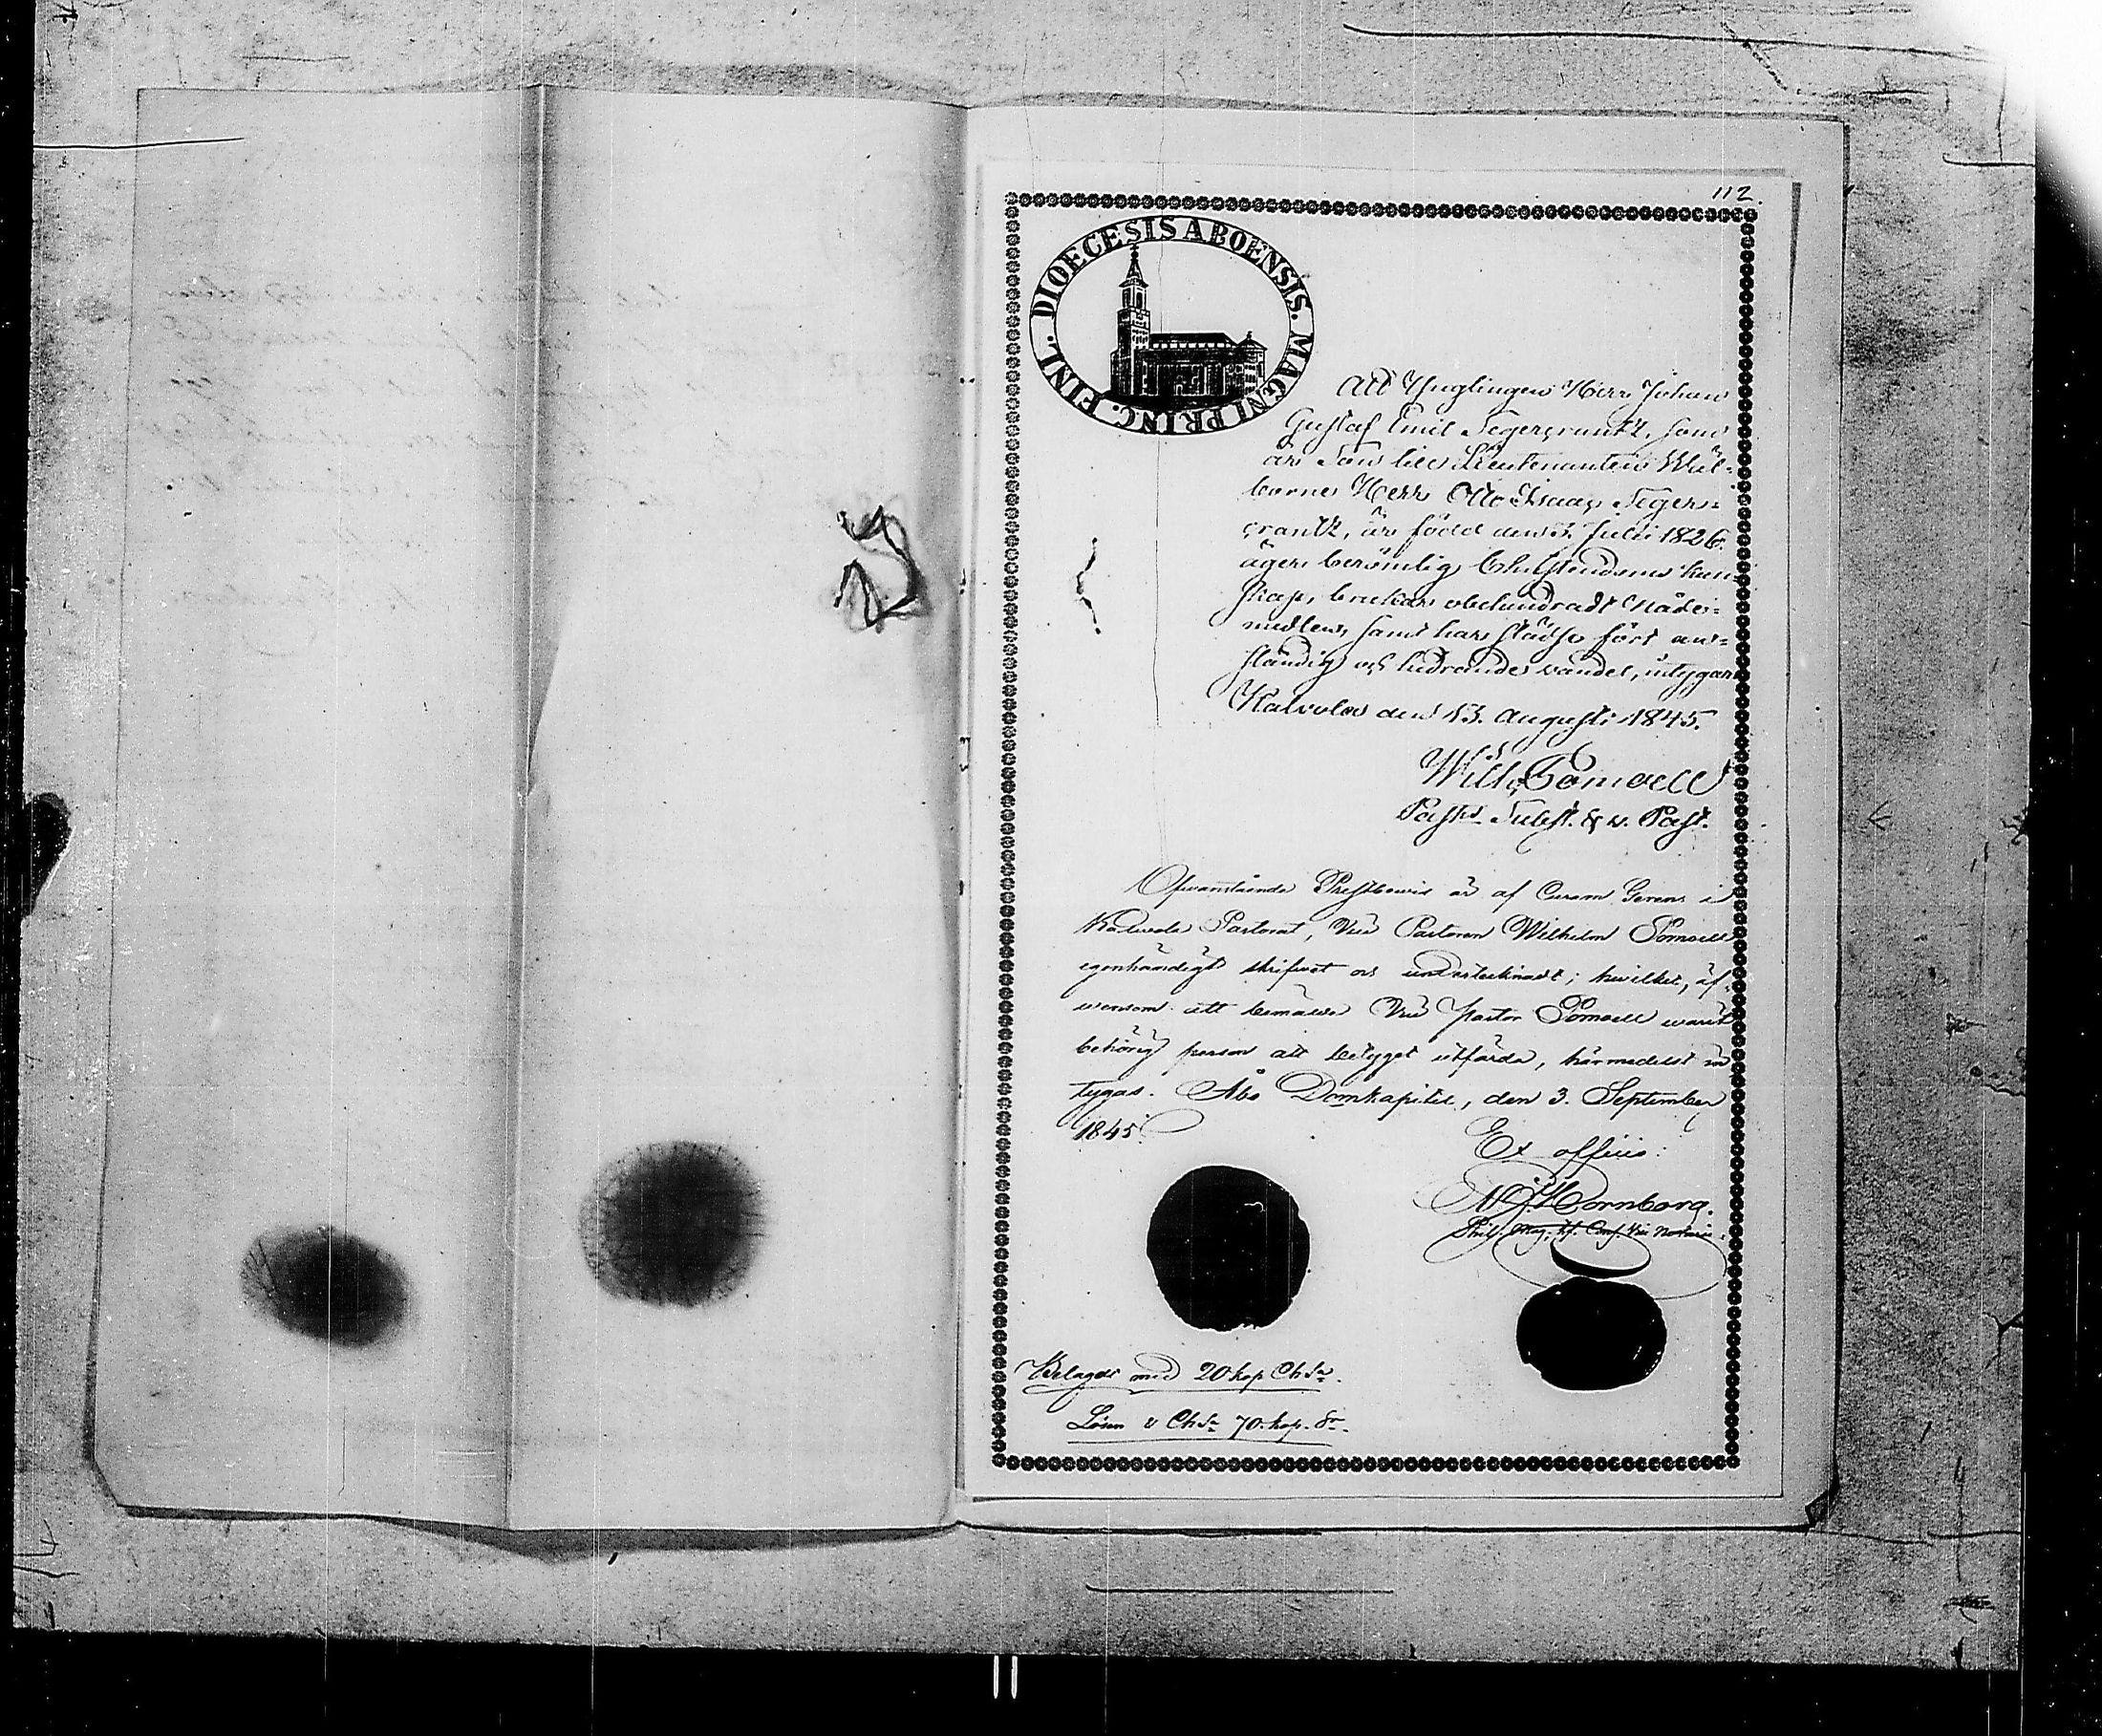 112.
DIOECESIS ABOENSIS. MAGNI PRINC. FINL.
Att Ynglingen Herr Johan
Gustaf Emil Segercrantz, som
är Son till Lieutenanten Wäl-
borne Herr Otto Isaac Seger-
crantz, är född den 3. Julii 1826.
äger berömlig Christendoms kun-
skap, brukar obehindradt Nåde-
medlen, samt har städse fört an-
ständig och hedrande vandel, intygar
Kalvola den 13. Augusti 1845.
Wilh. Pomoell
Past. Subst. & v. Past.
Ofwanstående Prestbewis är af Curam Gerens i
Kalvola Pastorat, Vice Pastoren Wilhelm Pomoell
egenhändigt skrifwet och undertecknadt; hwilket, äf-
wensom att bemälde Vice Pastor Pomoell warit
behörig person att betyget utfärda, härmedelst in
tygas. Åbo Domkapitel, den 3. September
1845.
Ex officio:
Hornborg.
Phil. Mag, Vice Notarie.
Belagdt med 20 kop Ch Sr.
Lösen o Ch Sr 70. kop. Sr.